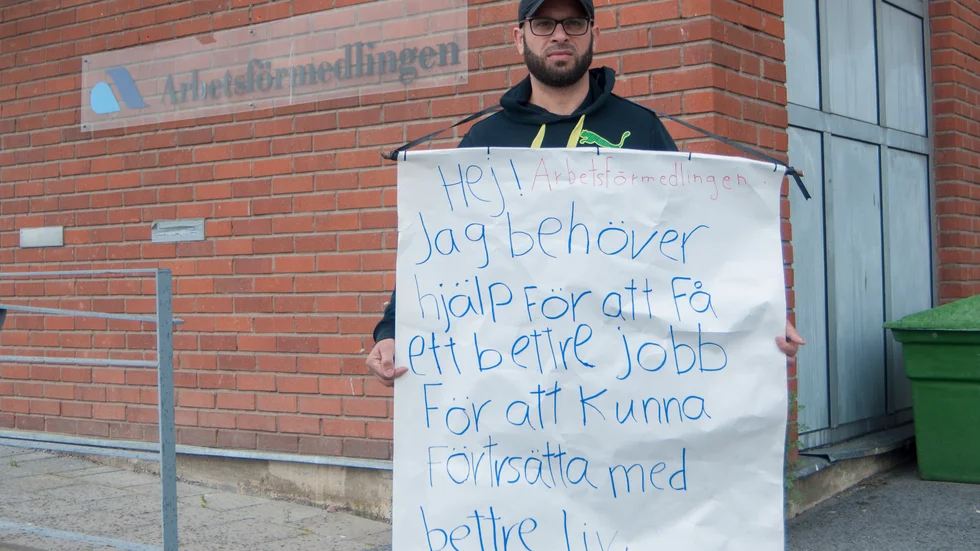 Arbetsförmedlingen
Hej! Arbetsförmedlingen
Jag behöver
hjälp För att Få
ett bettre jobb
För att Kunna
Förtrsätta med
bettre liv.